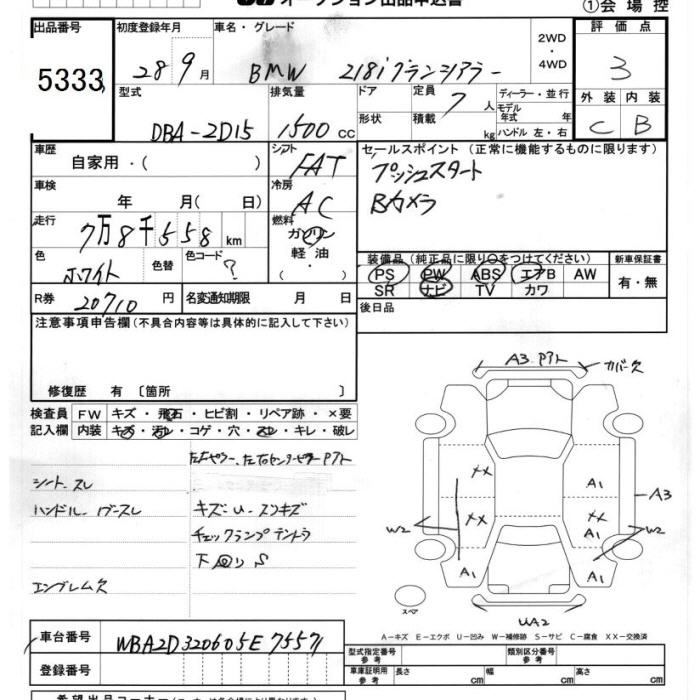 オークション出品申込書
①会場控
出品番号
5333
初度登録年月
28年9月
車名・グレード
BMW 218iグランツアラー
2WD
・
4WD
評価点
3
外装 内装
C B
型式
DBA-2D15
排気量
1500cc
ドア
形状
定員
7人
積載
kg
ディーラー・並行
モデル年式 年
ハンドル 左・右
車歴
自家用・( )
シフト
FAT
車検
年 月( 日)
冷房
AC
走行
7万8千558km
燃料
ガソリン
軽油
・
セールスポイント(正常に機能するものに限ります)
プッシュスタート
Bカメラ
色
ホワイト
色替
色コード
?
装備品(純正品に限り○をつけてください)
PS PW ABS エアB AW
SR ナビ TV カワ
新車保証書
有・無
R券
20710円
名変通知期限 月 日
後日品
注意事項申告欄(不具合内容等は具体的に記入して下さい)
修復歴 有〔箇所 〕
検査員記入欄
FW キズ・飛石・ヒビ割・リペア跡・×要
内装 キズ・汚レ・コゲ・穴・スレ・キレ・破レ
シート スレ
ハンドル
キズ・U・スリキズ
チェックランプテントウ
下回りS
エンブレム欠
A3 アト
カバー欠
XX
A1
A3
XX
XX
A1
W2
W2
A1
A1
スペア
UA2
A−キズ E−エクボ U−凹み W−補修跡 S−サビ C−腐食 XX−交換済
車台番号
WBA2D320605E75571
登録番号
型式指定番号
参考
類別区分番号
参考
車庫証明記入欄
参考
長さ cm
幅 cm
高さ cm
希望出品コーナー